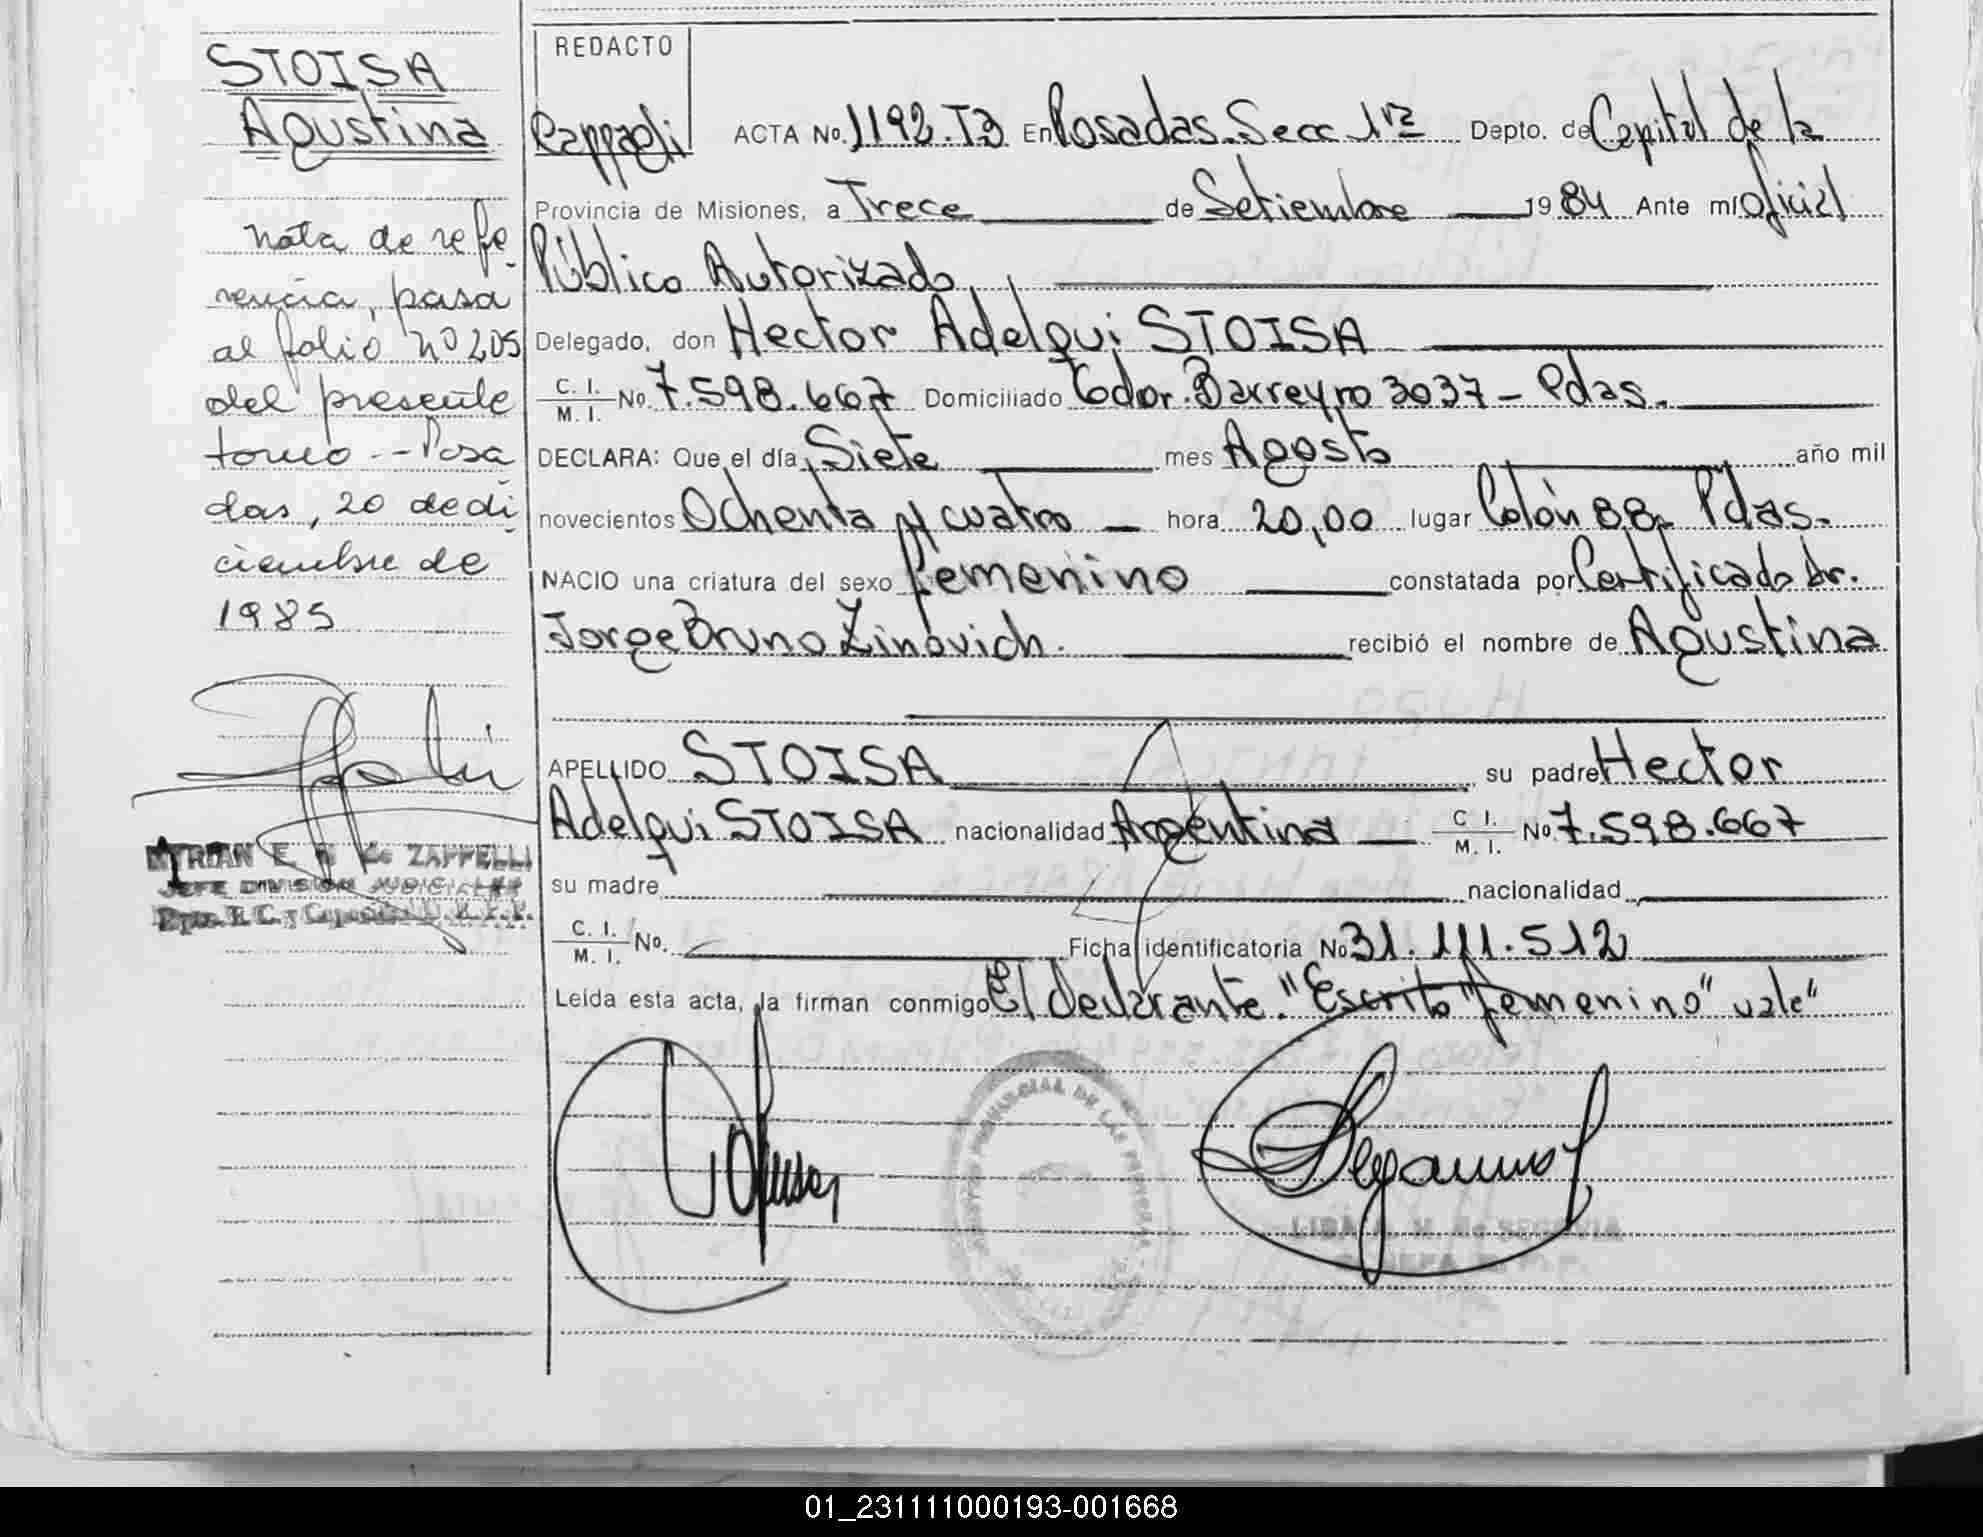 STOISA
Agustina
Nota de refe
rencia, pasa
al folio Nº 205
del presente
tomo -- Posa
das, 20 de di
ciembre de
1985
MYRIAN E. de ZAPPELLI
JEFE DIVISION JUDICIALES
REDACTO
Rappagli
ACTA No. 1192.T3 En Posadas. Secc 1ra Depto. de Capital de la
Provincia de Misiones, a Trece de Setiembre 1984 Ante mí Oficial
Público Autorizado
Delegado, don Hector Adelqui STOISA
C. I. / M. I. No. 7.598.667 Domiciliado Cdor. Barreyro 3037 - Pdas.
DECLARA: Que el día Siete mes Agosto año mil
novecientos Ochenta y cuatro — hora 20,00 lugar Colón 88, Pdas.
NACIO una criatura del sexo femenino constatada por Certificado Dr.
Jorge Bruno Zinovich. recibió el nombre de Agustina
APELLIDO STOISA su padre Hector
Adelqui STOISA nacionalidad Argentina — C. I. / M. I. No 7.598.667
su madre nacionalidad
C. I. / M. I. No. Ficha identificatoria No 31.111.512
Leída esta acta, la firman conmigo El declarante. "Escrito "femenino" vale"
01_231111000193-001668